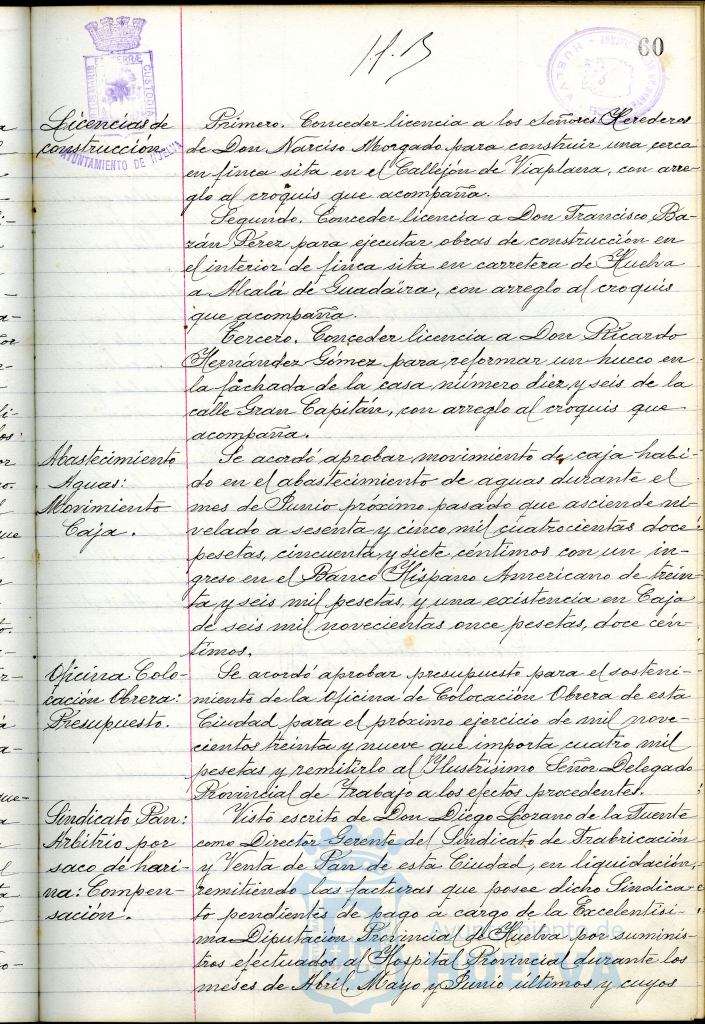 60
Licencias de
construcción.
AYUNTAMIENTO DE HUELVA
Primero. Conceder licencia a los Señores Herederos
de Don Narciso Morgado para construir una cerca
en finca sita en el Callejón de Viaplana, con arre-
glo al croquis que acompaña.
Segundo. Conceder licencia a Don Francisco Ba-
zán Pérez para ejecutar obras de construcción en
el interior de finca sita en carretera de Huelva
a Alcalá de Guadaira, con arreglo al croquis
que acompaña.
Tercero. Conceder licencia a Don Ricardo
Hernández Gómez para reformar un hueco en
la fachada de la casa número diez y seis de la
calle Gran Capitán, con arreglo al croquis que
acompaña.
Abastecimiento
Aguas:
Movimiento
Caja.
Se acordó aprobar movimiento de caja habi-
do en el abastecimiento de aguas durante el
mes de Junio próximo pasado que asciende ni-
velado a sesenta y cinco mil cuatrocientas doce
pesetas, cincuenta y siete céntimos con un in-
greso en el Banco Hispano Americano de trein-
ta y seis mil pesetas, y una existencia en Caja
de seis mil novecientas once pesetas, doce cén-
timos.
Oficina Colo-
cación Obrera:
Presupuesto.
Se acordó aprobar presupuesto para el sosteni-
miento de la Oficina de Colocación Obrera de esta
Ciudad para el próximo ejercicio de mil nove-
cientos treinta y nueve que importa cuatro mil
pesetas y remitirlo al Ilustrísimo Señor Delegado
Provincial de Trabajo a los efectos procedentes.
Sindicato Pan:
Arbitrio por
saco de hari-
na: Compen-
sación.
Visto escrito de Don Diego Lozano de la Fuente
como Director Gerente del Sindicato de Frabricación
y Venta de Pan de esta Ciudad, en liquidación,
remitiendo las facturas que posee dicho Sindica-
to pendientes de pago a cargo de la Excelentísi-
ma Diputación Provincial de Huelva por suminis-
tros efectuados al Hospital Provincial durante los
meses de Abril, Mayo y Junio últimos y cuyos
Ayuntamiento de
HUELVA